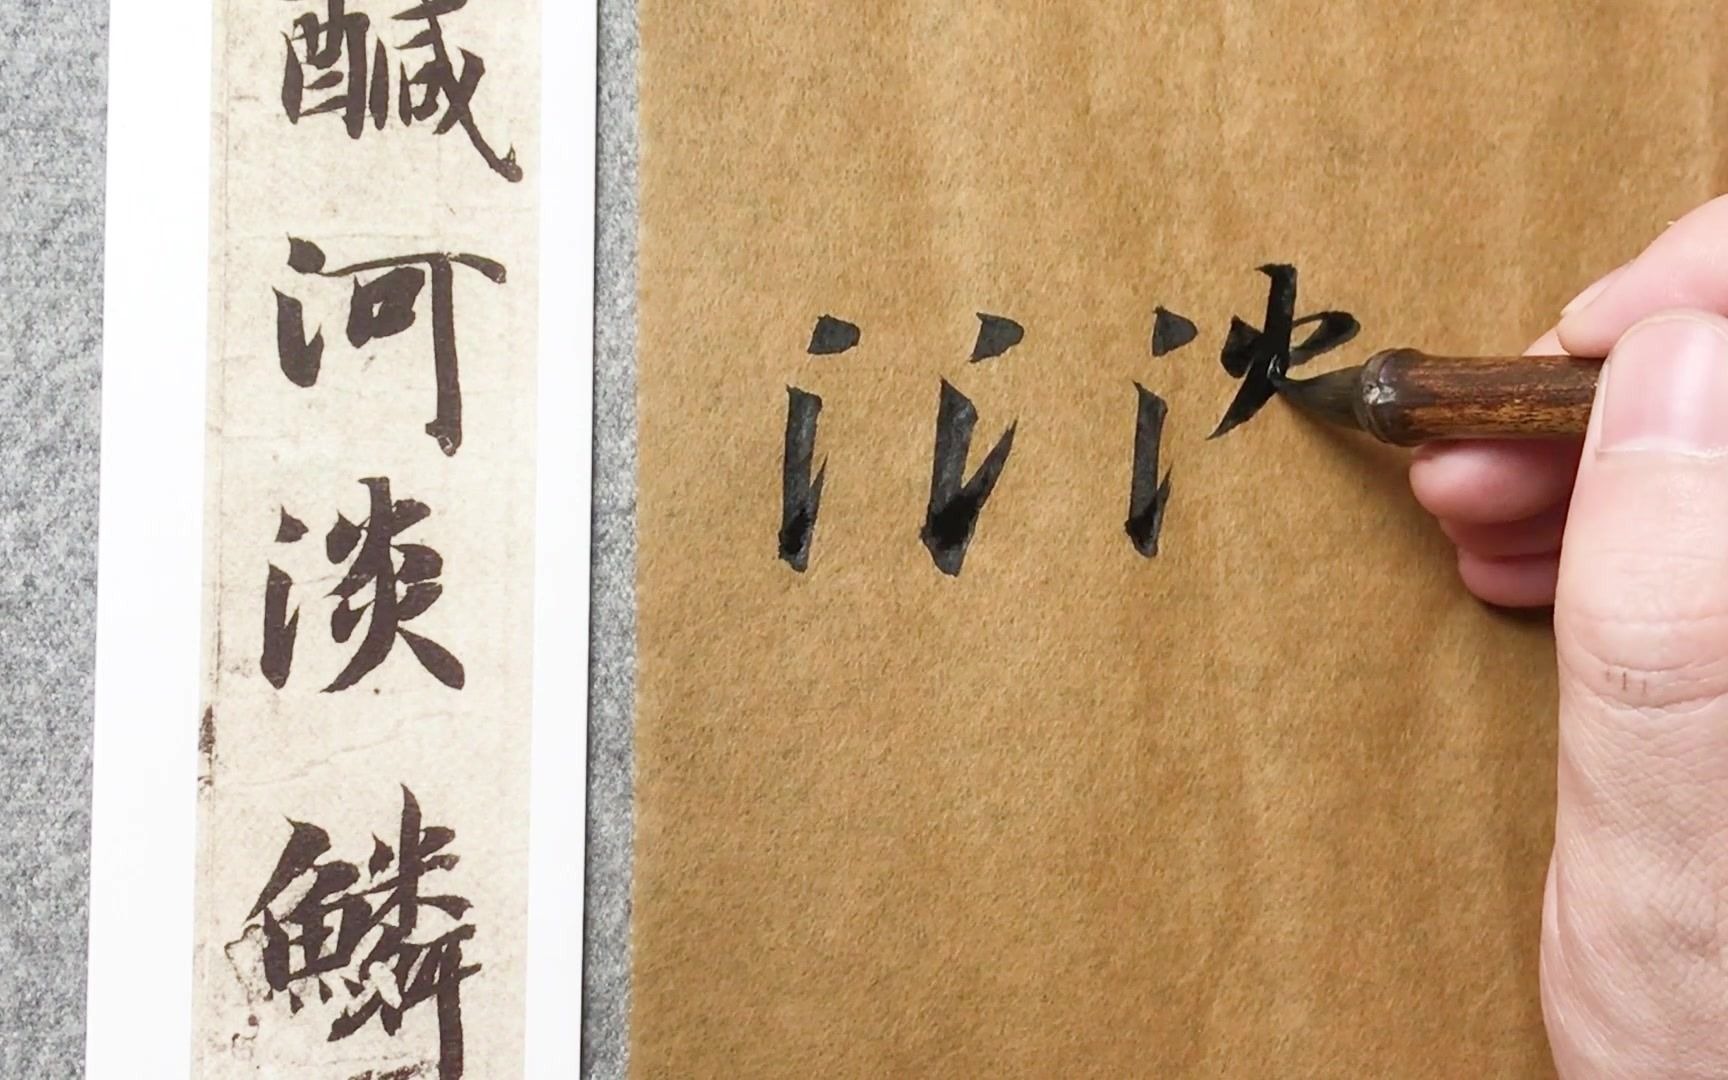 鹹
河
淡
鱗
氵氵淡